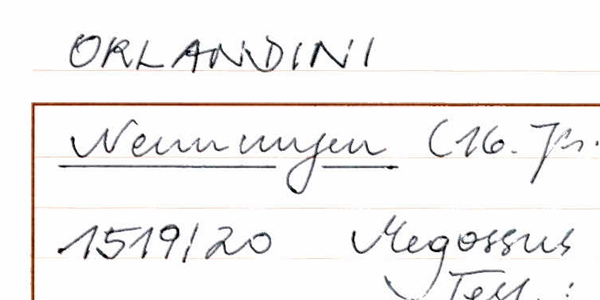 ORLANDINI
Nennungen (16. Jh.
1519/20 Megossus
Test.: